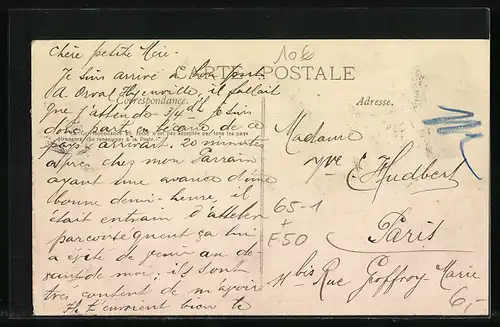 Chère petite Mère.
10€
CARTE POSTALE
Je suis arrivé à bon port
A Orval Hyenville, il fallait
que j'attende 3/4 d'h. je suis
Correspondance.
Adresse.
donc parti à
pays arrivant. 20 minutes
après chez mon Parrain
ayant une avance d'une
bonne demi-heure, il
était entrain d'atteler
par conséquent ça lui
a évité de venir au de-
vant de moi. ils sont
très content de m'avoir
bien te
Madame
Vve E. Hudbert
Paris
11 bis Rue Geoffroy-Marie
65-1
+
F50
6,-